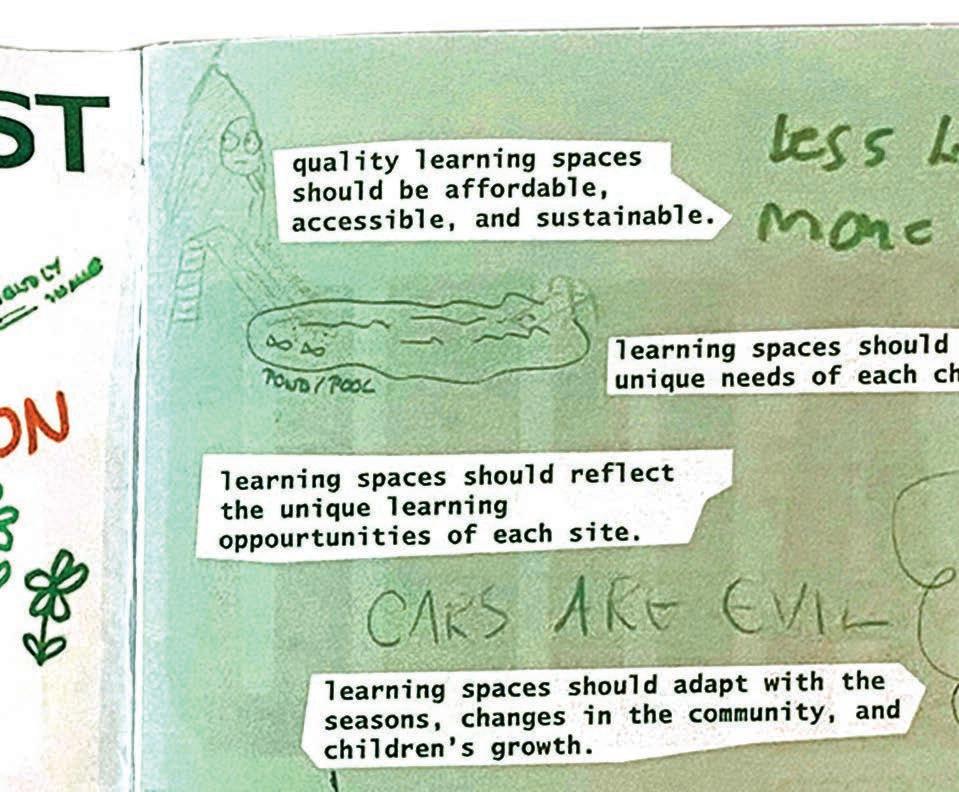 ST
ON
quality learning spaces
should be affordable,
accessible, and sustainable.
less
more
POND/POOL
learning spaces should
unique needs of each ch
learning spaces should reflect
the unique learning
oppourtunities of each site.
CARS ARE EVIL
learning spaces should adapt with the
seasons, changes in the community, and
children's growth.